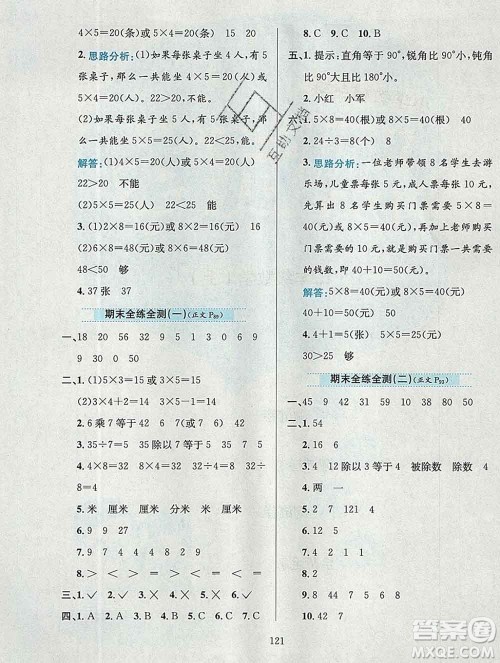 4×5=20(或5×4=20) 15 20
2.思路分析:(1)如果每张桌子坐4人,5张桌子一共能坐5×4=20(人)或4×5=20(人)。22>20,不能坐下。
(2)如果每张桌子坐5人,5张桌子一共能坐5×5=25(人)。22<25,能坐下。
解答:(1)4×5=20(人)或5×4=20(人)
22>20 不能
(2)5×5=25(人) 22<25 能
3.(1)2×8=16(元)或8×2=16(元)
(2)8×6=48(元)或6×8=48(元)
48<50 够
4.37张
期末全练全测(一)(正文P89)
一、18 20 56 32 5 9 1 3 0 6 9
9 30 9 0 49
二、1.(1)5×3=15 3×5=15
(2)3×4=12 4×3=12
2.6乘7等于42 42(或7)
3.35÷7=5 35除以7等于5
4.8×4=32 4×8=32 32÷4=8
32÷8=4
5.米 厘米 厘米 分米 米 厘米
6.9 9 27
7.9 7 7 7 8 4
8.> < = > < =
三、1.✓ 2.✓ 3.✓ 4.✓ 5.✓
四、1.A 2.A 3.B 4.C 5.B 6.C 7.C
8.C 9.C 10.B
五、1.提示:直角等于90°,锐角比90°小,钝角比90°大且比180°小。
2.小红 小军
六、1.9×5=45(或5×9=45)
2.24÷3=8
3.思路分析:一位老师带领8名学生去游乐场,儿童票每张5元,成人票每张10元,先算出8名学生购买门票需要5×8=40(元),再加上老师购买门票需要的10元,就是他们购买门票一共需要的钱数,即40+10=50(元)。
解答:5×8=40(元)或8×5=40(元)
40+10=50(元)
4.(1)40÷8=5(张)
(2)5×6=30(元)或6×5=30(元)
30>25 够
期末全练全测(二)(正文P92)
一、45 9 42 30 10 38 80 50
二、1.54
2.16 6
3.4 12除以3等于4 被除数 除数 商
4.两 一
5.12
6.8 2 4
7.117 121 4
8.< = > < >
9.8 44 7 8 5 6
10.2 7 4 8
121
互助文学
作业帮答案
MXQE.COM